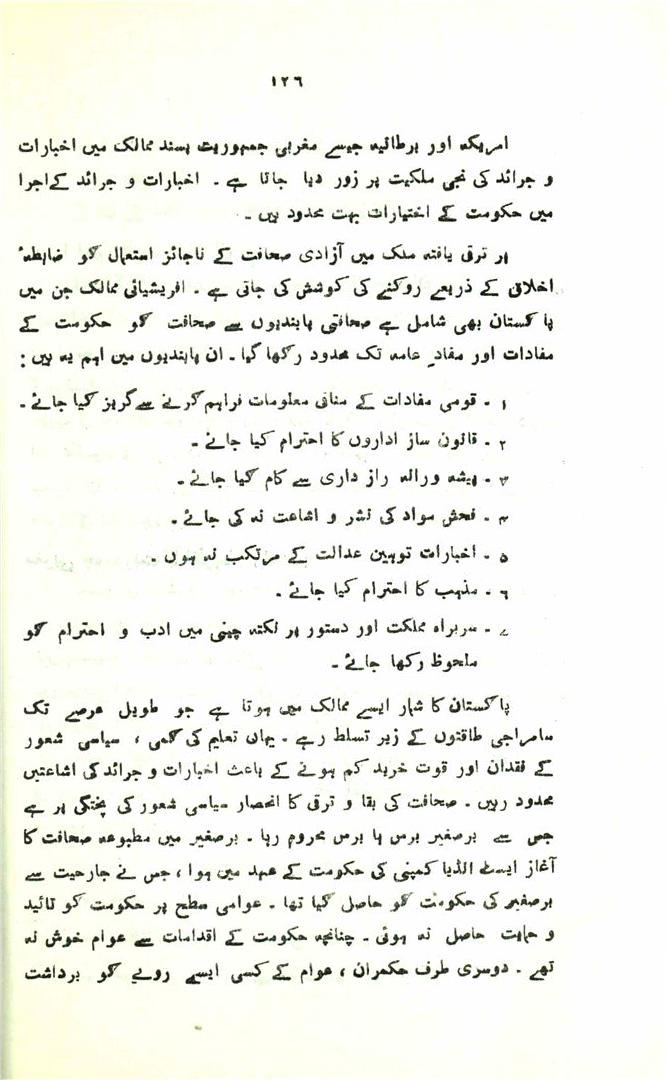 ١٢٦
امریکہ اور برطانیہ جیسے مغربی جمہوریت پسند ممالک میں اخبارات
و جرائد کی نجی ملکیت پر زور دیا جاتا ہے ۔ اخبارات و جرائد کے اجرا
میں حکومت کے اختیارات بہت محدود ہیں ۔
ہر ترقی یافتہ ملک میں آزادی صحافت کے ناجائز استعمال کو ضابطہٴ
اخلاق کے ذریعے روکنے کی کوشش کی جاتی ہے ۔ افریشیائی ممالک جن میں
پاکستان بھی شامل ہے صحافتی پابندیوں سے صحافت کو حکومت کے
مفادات اور مفادِ عامہ تک محدود رکھا گیا ۔ ان پابندیوں میں اہم یہ ہیں :
۱ ۔ قومی مفادات کے منافی معلومات فراہم کرنے سے گریز کیا جائے ۔
۲ ۔ قانون ساز اداروں کا احترام کیا جائے ۔
۳ ۔ پیشہ ورانہ راز داری سے کام لیا جائے ۔
۴ ۔ فحش مواد کی نشر و اشاعت نہ کی جائے ۔
۵ ۔ اخبارات توہین عدالت کے مرتکب نہ ہوں ۔
۶ ۔ مذہب کا احترام کیا جائے ۔
۷ ۔ سربراہ مملکت اور دستور پر نکتہ چینی میں ادب و احترام کو
ملحوظ رکھا جائے ۔
پاکستان کا شمار ایسے ممالک میں ہوتا ہے جو طویل عرصے تک
سامراجی طاقتوں کے زیر تسلط رہے ۔ یہاں تعلیم کی کمی ، سیاسی شعور
کے فقدان اور قوت خرید کم ہونے کے باعث اخبارات و جرائد کی اشاعتیں
محدود رہیں ۔ صحافت کی بقا و ترقی کا انحصار سیاسی شعور کی پختگی پر ہے
جس سے برصغیر برس ہا برس محروم رہا ۔ برصغیر میں مطبوعہ صحافت کا
آغاز ایسٹ انڈیا کمپنی کی حکومت کے عہد میں ہوا ، جس نے جارحیت سے
برصغیر کی حکومت کو حاصل کیا تھا ۔ عوامی سطح پر حکومت کو تائید
و حمایت حاصل نہ ہوئی ۔ چنانچہ حکومت کے اقدامات سے عوام خوش نہ
تھے ۔ دوسری طرف حکمران ، عوام کے کسی ایسے رویے کو برداشت